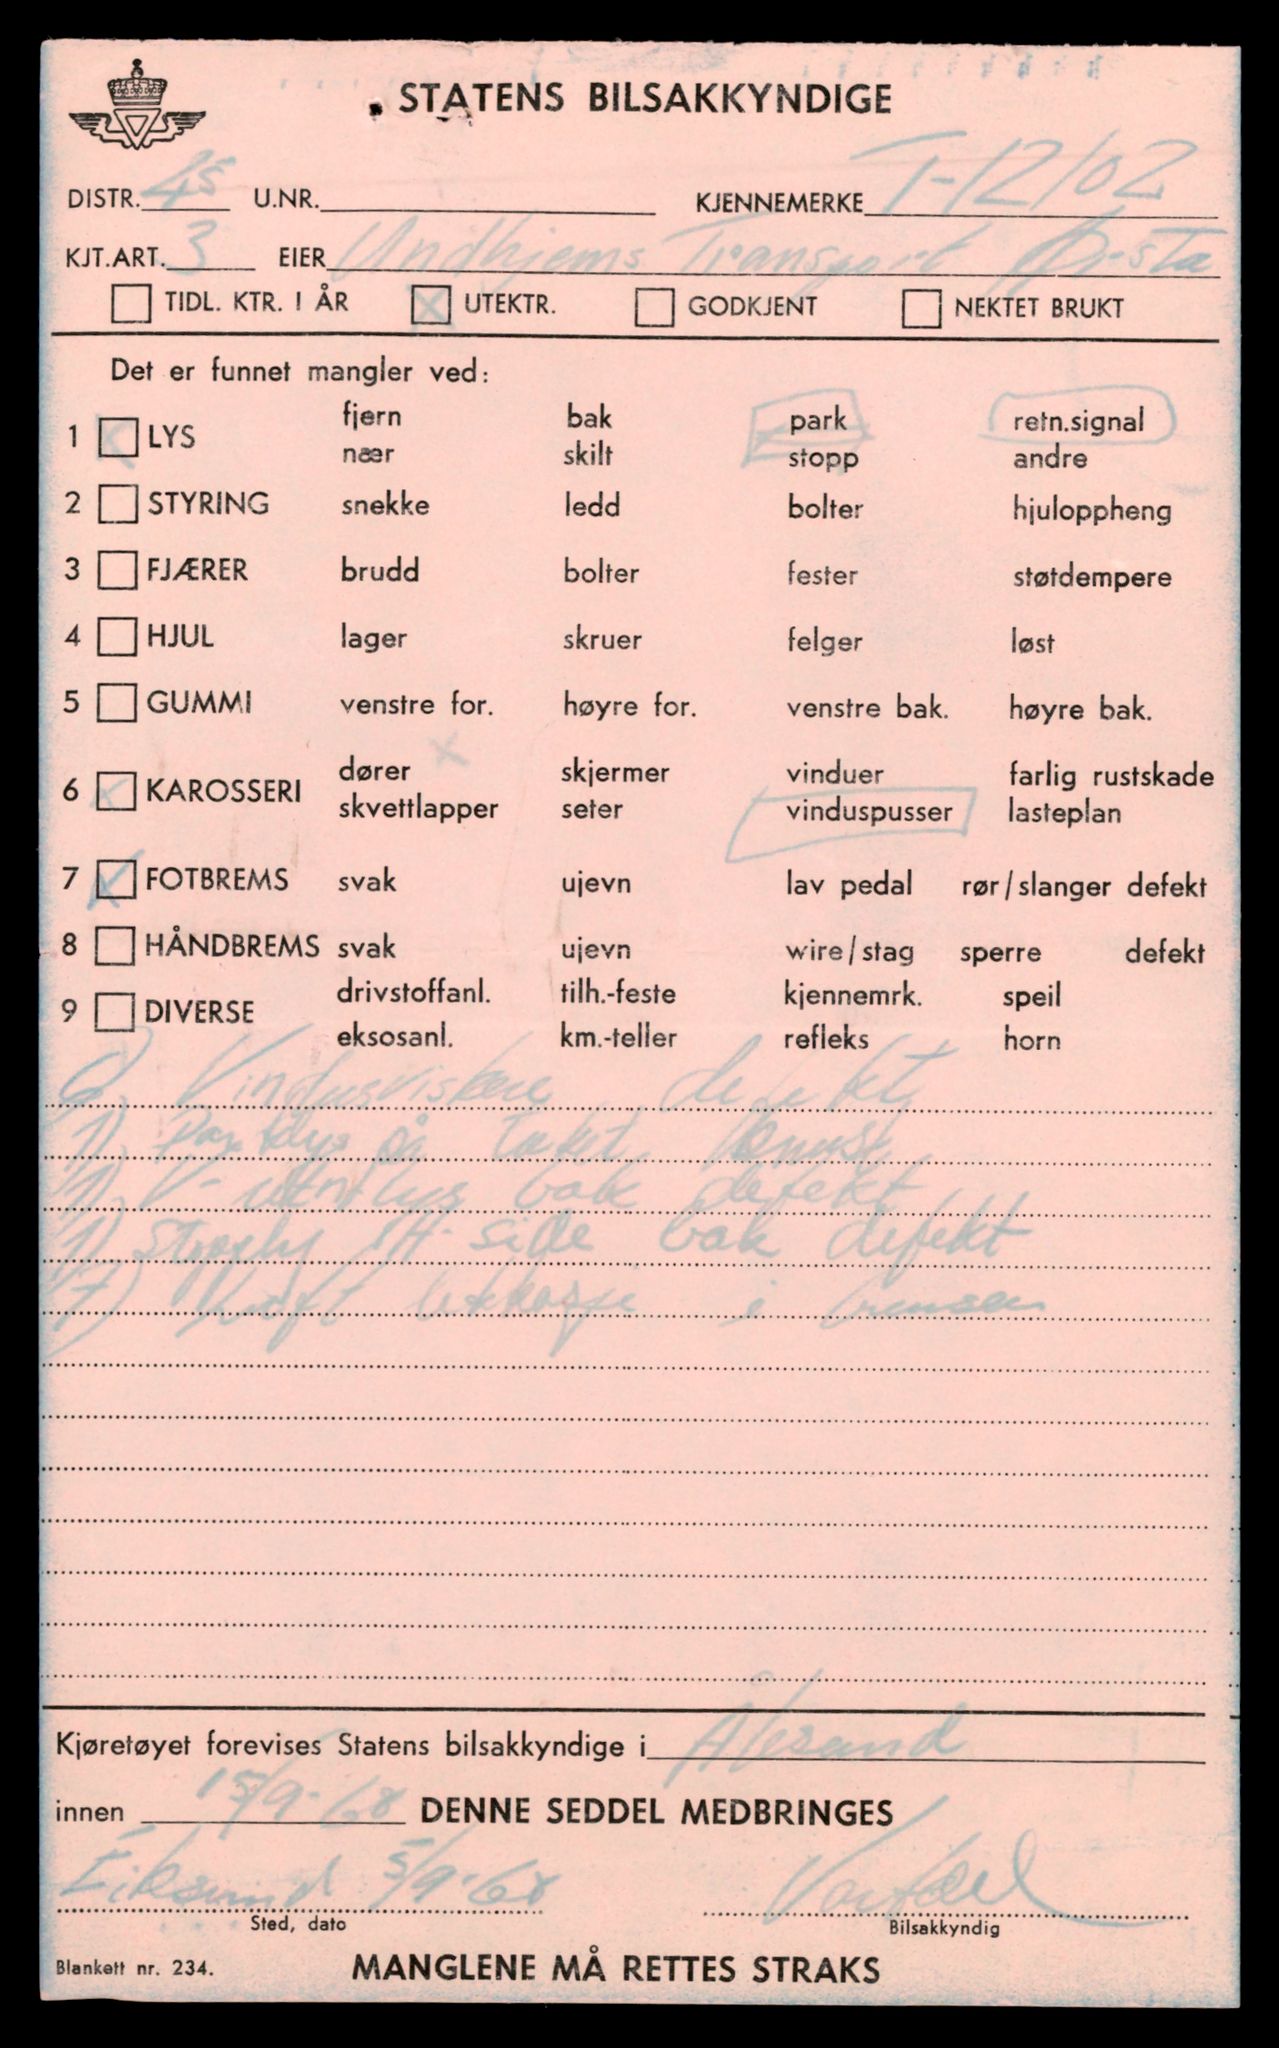 STATENS BILSAKKYNDIGE
DISTR. 45 U.NR. KJENNEMERKE T-12102
KJT.ART. 3 EIER Undhjems Transport Ørsta
TIDL. KTR. I ÅR UTEKTR. GODKJENT NEKTET BRUKT
Det er funnet mangler ved:
1 LYS fjern bak park retn.signal
nær skilt stopp andre
2 STYRING snekke ledd bolter hjuloppheng
3 FJÆRER brudd bolter fester støtdempere
4 HJUL lager skruer felger løst
5 GUMMI venstre for. høyre for. venstre bak. høyre bak.
6 KAROSSERI dører skjermer vinduer farlig rustskade
skvettlapper seter vinduspusser lasteplan
7 FOTBREMS svak ujevn lav pedal rør/slanger defekt
8 HÅNDBREMS svak ujevn wire/stag sperre defekt
9 DIVERSE drivstoffanl. tilh.-feste kjennemrk. speil
eksosanl. km.-teller refleks horn
6) Vindusviskere defekt
1) Parklys på taket knust
1) V- retn lys bak defekt
1) Stopply H- side bak defekt
7) Luft lekkasje i bremsen
Kjøretøyet forevises Statens bilsakkyndige i Ålesund
innen 15/9-68 DENNE SEDDEL MEDBRINGES
Eiksund 5/9-68
Sted, dato Bilsakkyndig
Blankett nr. 234. MANGLENE MÅ RETTES STRAKS